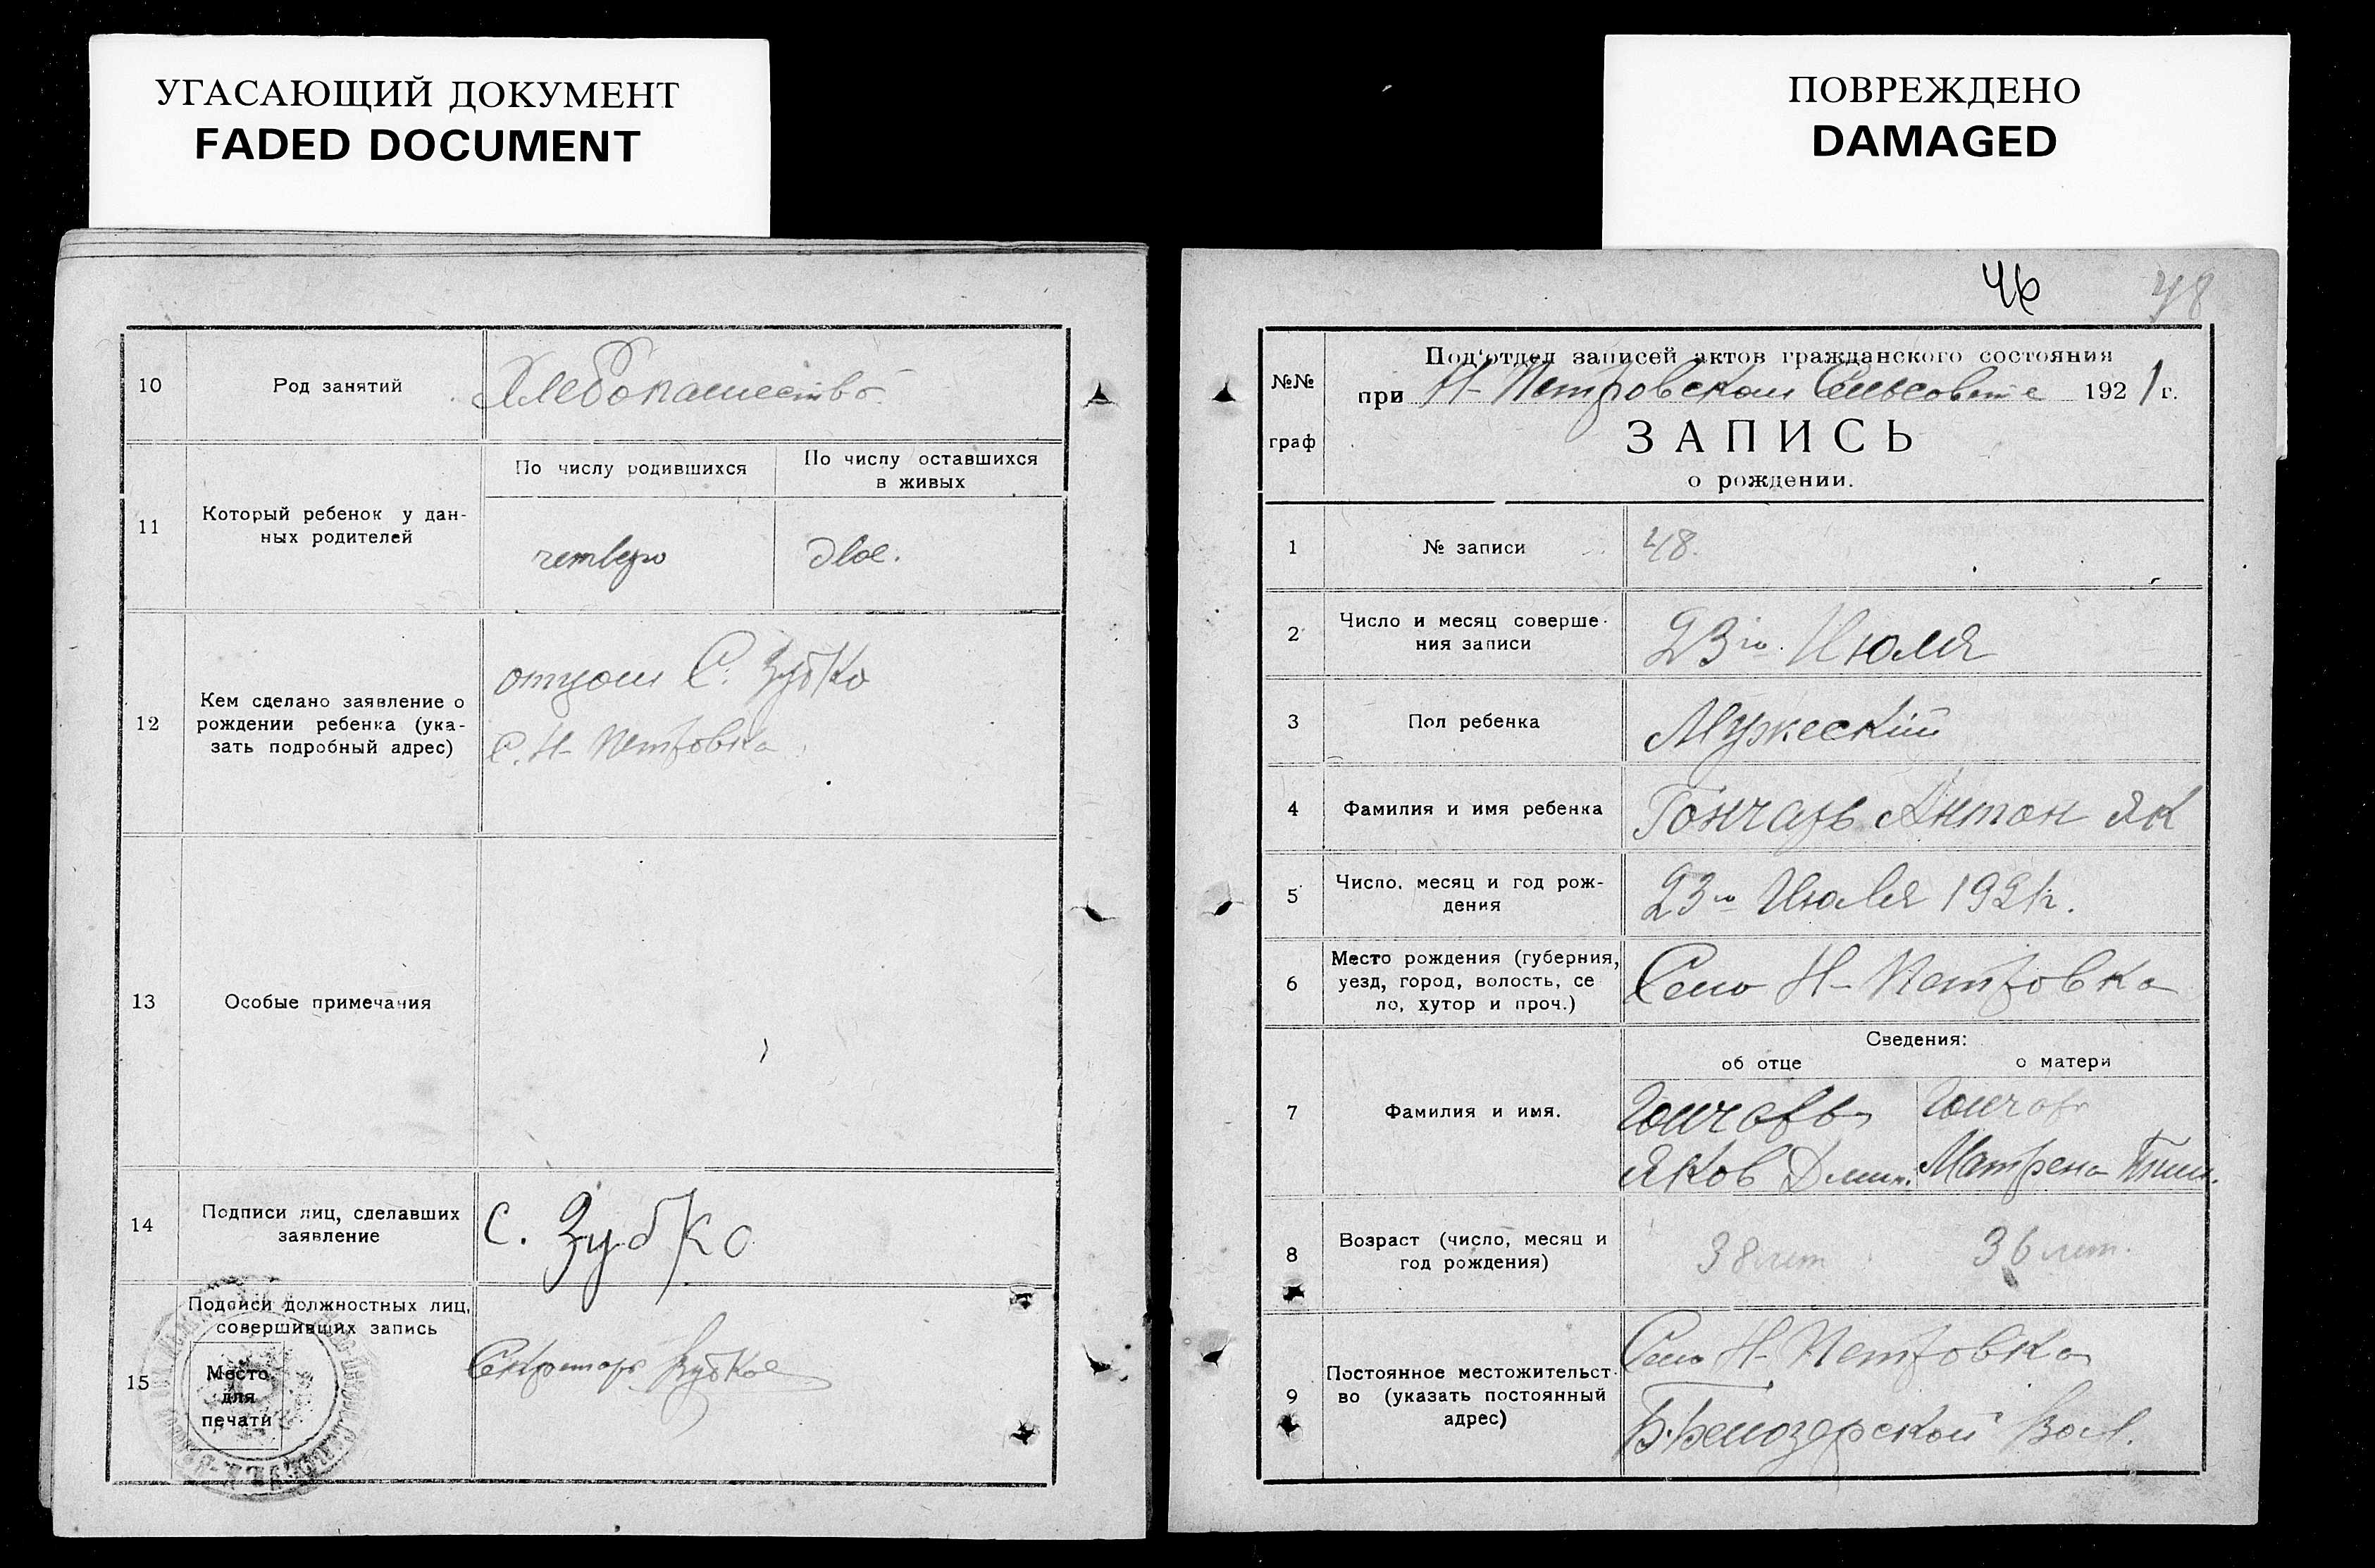 УГАСАЮЩИЙ ДОКУМЕНТ
FADED DOCUMENT
ПОВРЕЖДЕНО
DAMAGED
10
Род занятий
Хлебопашество
11
Который ребенок у дан-
ных родителей
По числу родившихся
По числу оставшихся
в живых
четверо
двое.
12
Кем сделано заявление о
рождении ребенка (ука-
зать подробный адрес)
отцом С. Зубко
С. Н-Петровка
13
Особые примечания
14
Подписи лиц, сделавших
заявление
С. Зубко
15
Подписи должностных лиц,
совершивших запись
Место
для
печати
Секретарь Зубко
46
48
№№
граф
Под'отдел записей актов гражданского состояния
при Н-Петровском Сельсовете 1921 г.
ЗАПИСЬ
о рождении.
1
№ записи
48.
2
Число и месяц соверше-
ния записи
23го Июля
3
Пол ребенка
Мужеский
4
Фамилия и имя ребенка
Гончарь Антон Як
5
Число, месяц и год рож-
дения
23го Июля 1921г.
6
Место рождения (губерния,
уезд, город, волость, се
ло, хутор и проч.)
Село Н-Петровка
Сведения:
об отце
о матери
7
Фамилия и имя.
Гончарь
Яков Дмит.
Гончарь
Матрена Тим.
8
Возраст (число, месяц и
год рождения)
38 лет
36 лет.
9
Постоянное местожительст-
во (указать постоянный
адрес)
Село Н-Петровка
Б. Белозерской Вол.